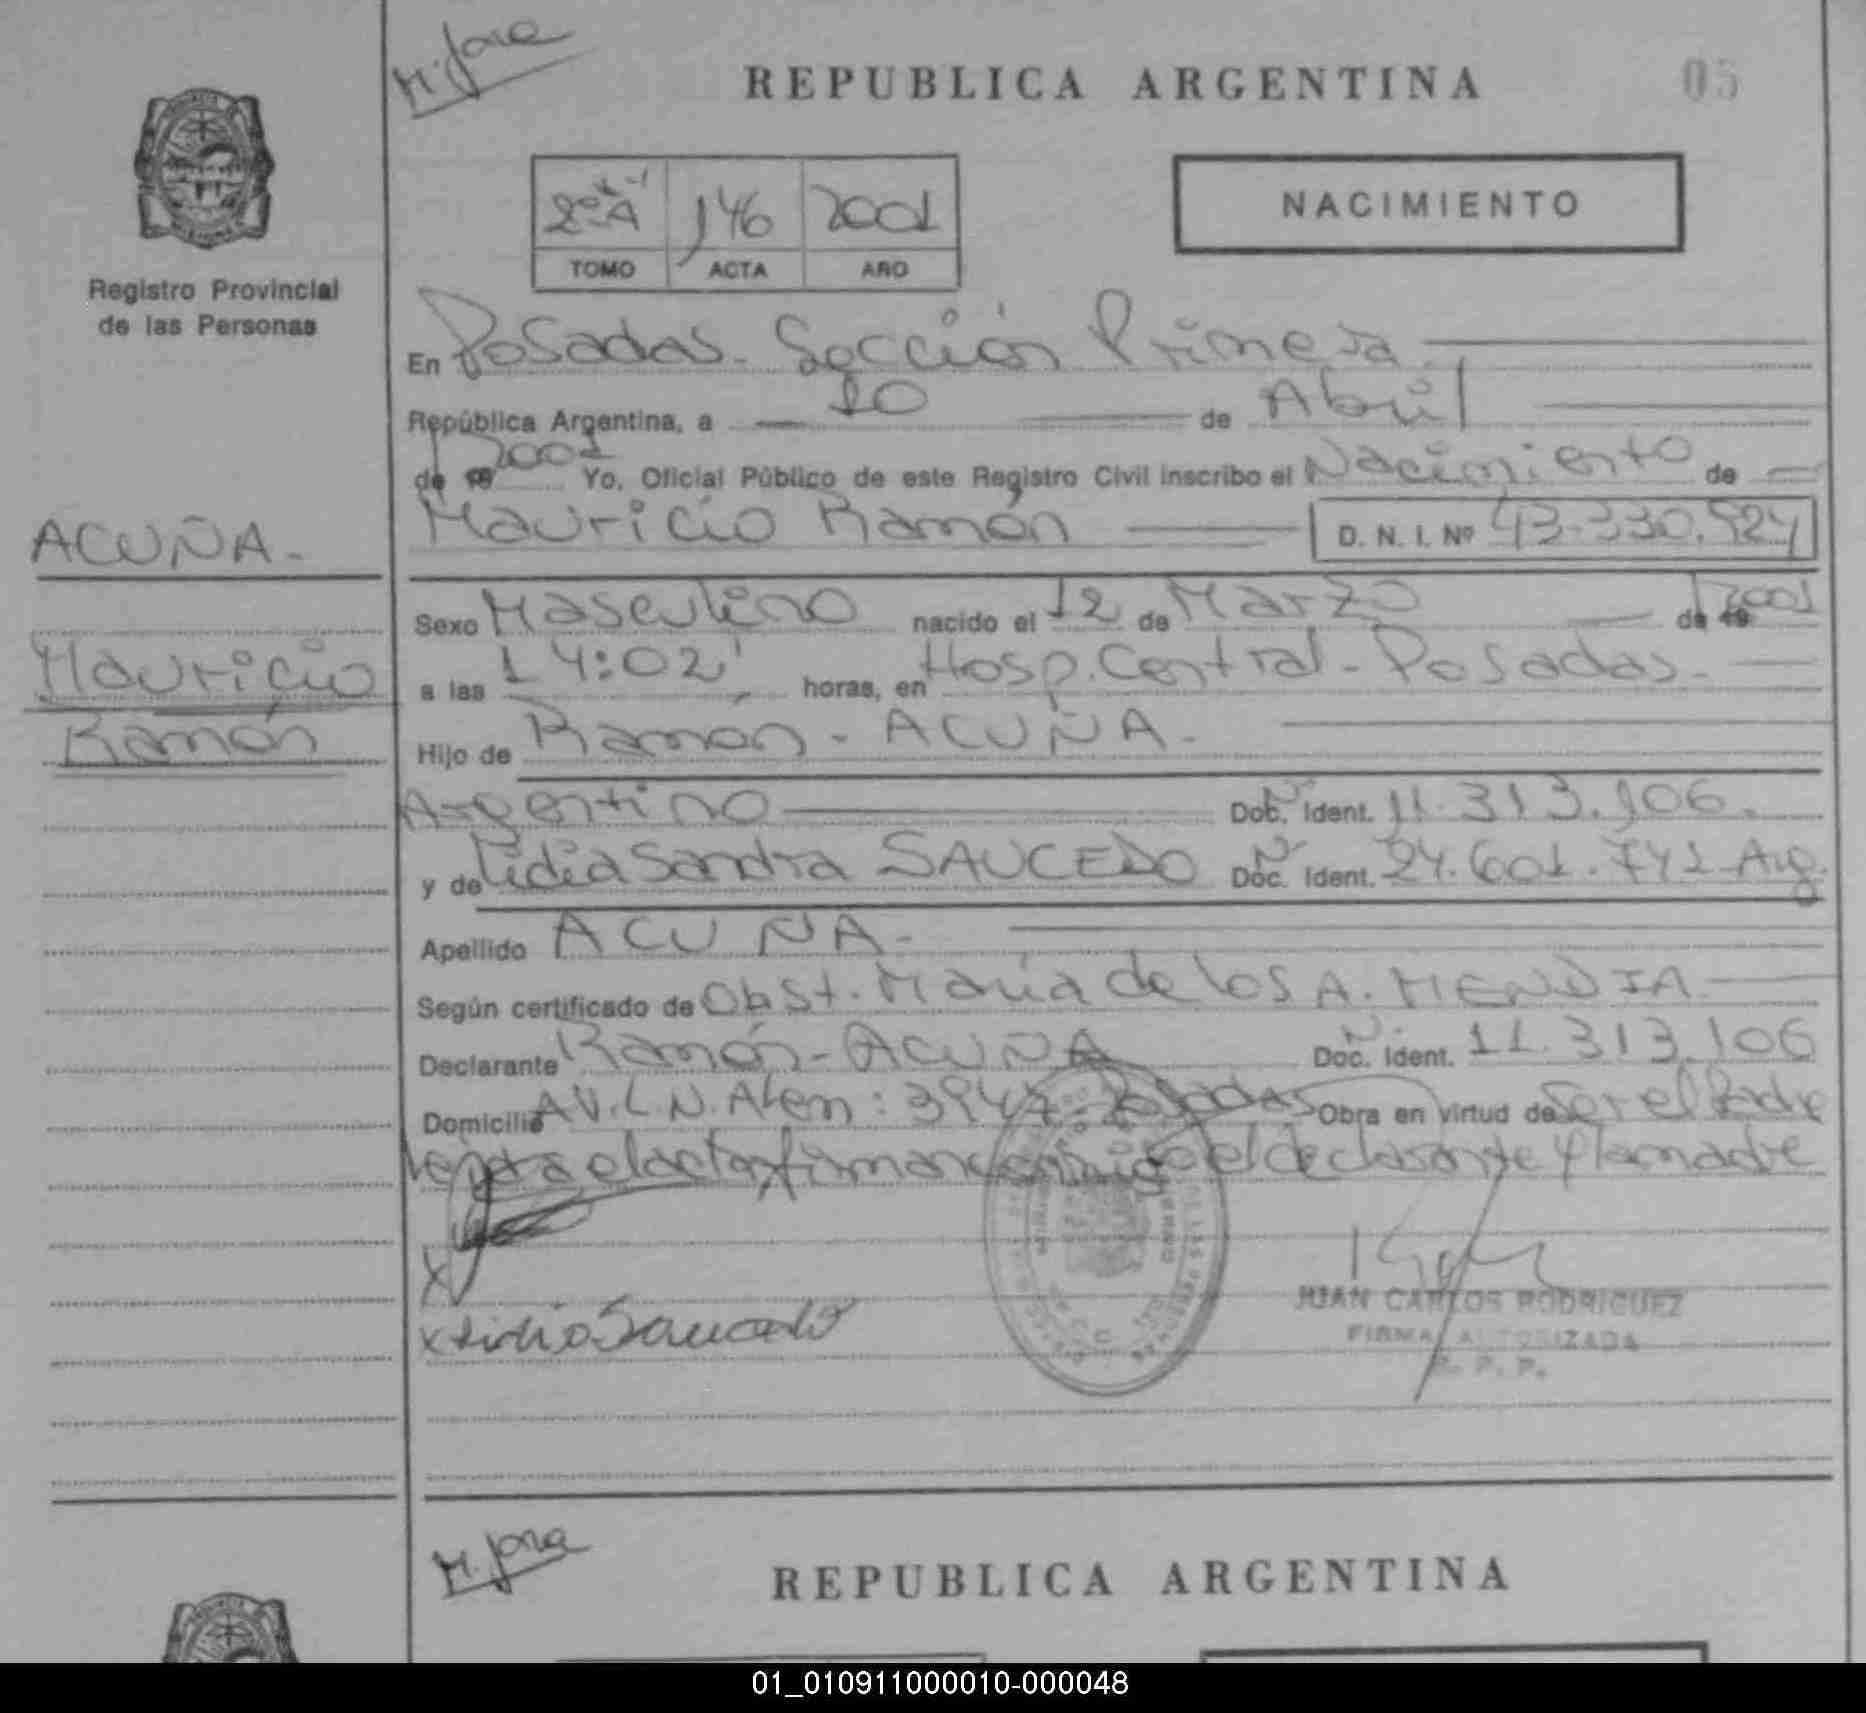 M. Jose
REPUBLICA ARGENTINA
05
2º A 146 2001
TOMO ACTA AÑO
NACIMIENTO
Registro Provincial
de las Personas
En Posadas - Sección Primera
República Argentina, a 10 de Abril
de 19 2001 Yo, Oficial Público de este Registro Civil inscribo el Nacimiento de
Mauricio Ramón D. N. I. Nº 43.330.924
ACUÑA.
Mauricio
Ramón
Sexo Masculino nacido el 12 de Marzo de 19 2001
a las 14:02' horas, en Hosp. Central - Posadas.
Hijo de Ramón - ACUÑA.
Argentino Doc. Ident. Nº 11.313.106.
y de Lidia Sandra SAUCEDO Doc. Ident. Nº 24.601.741 Arg.
Apellido ACUÑA.
Según certificado de Obst. María de los A. MENDIA
Declarante Ramón - ACUÑA Doc. Ident. Nº 11.313.106
Domicilio AV. L. N. Alem: 3947 - Posadas Obra en virtud de Ser el Padre
el acta firman conmigo el declarante y la madre
x
x Lidia Saucedo
JUAN CARLOS RODRIGUEZ
FIRMA AUTORIZADA
R. P. P.
M. Jose
REPUBLICA ARGENTINA
01_010911000010-000048